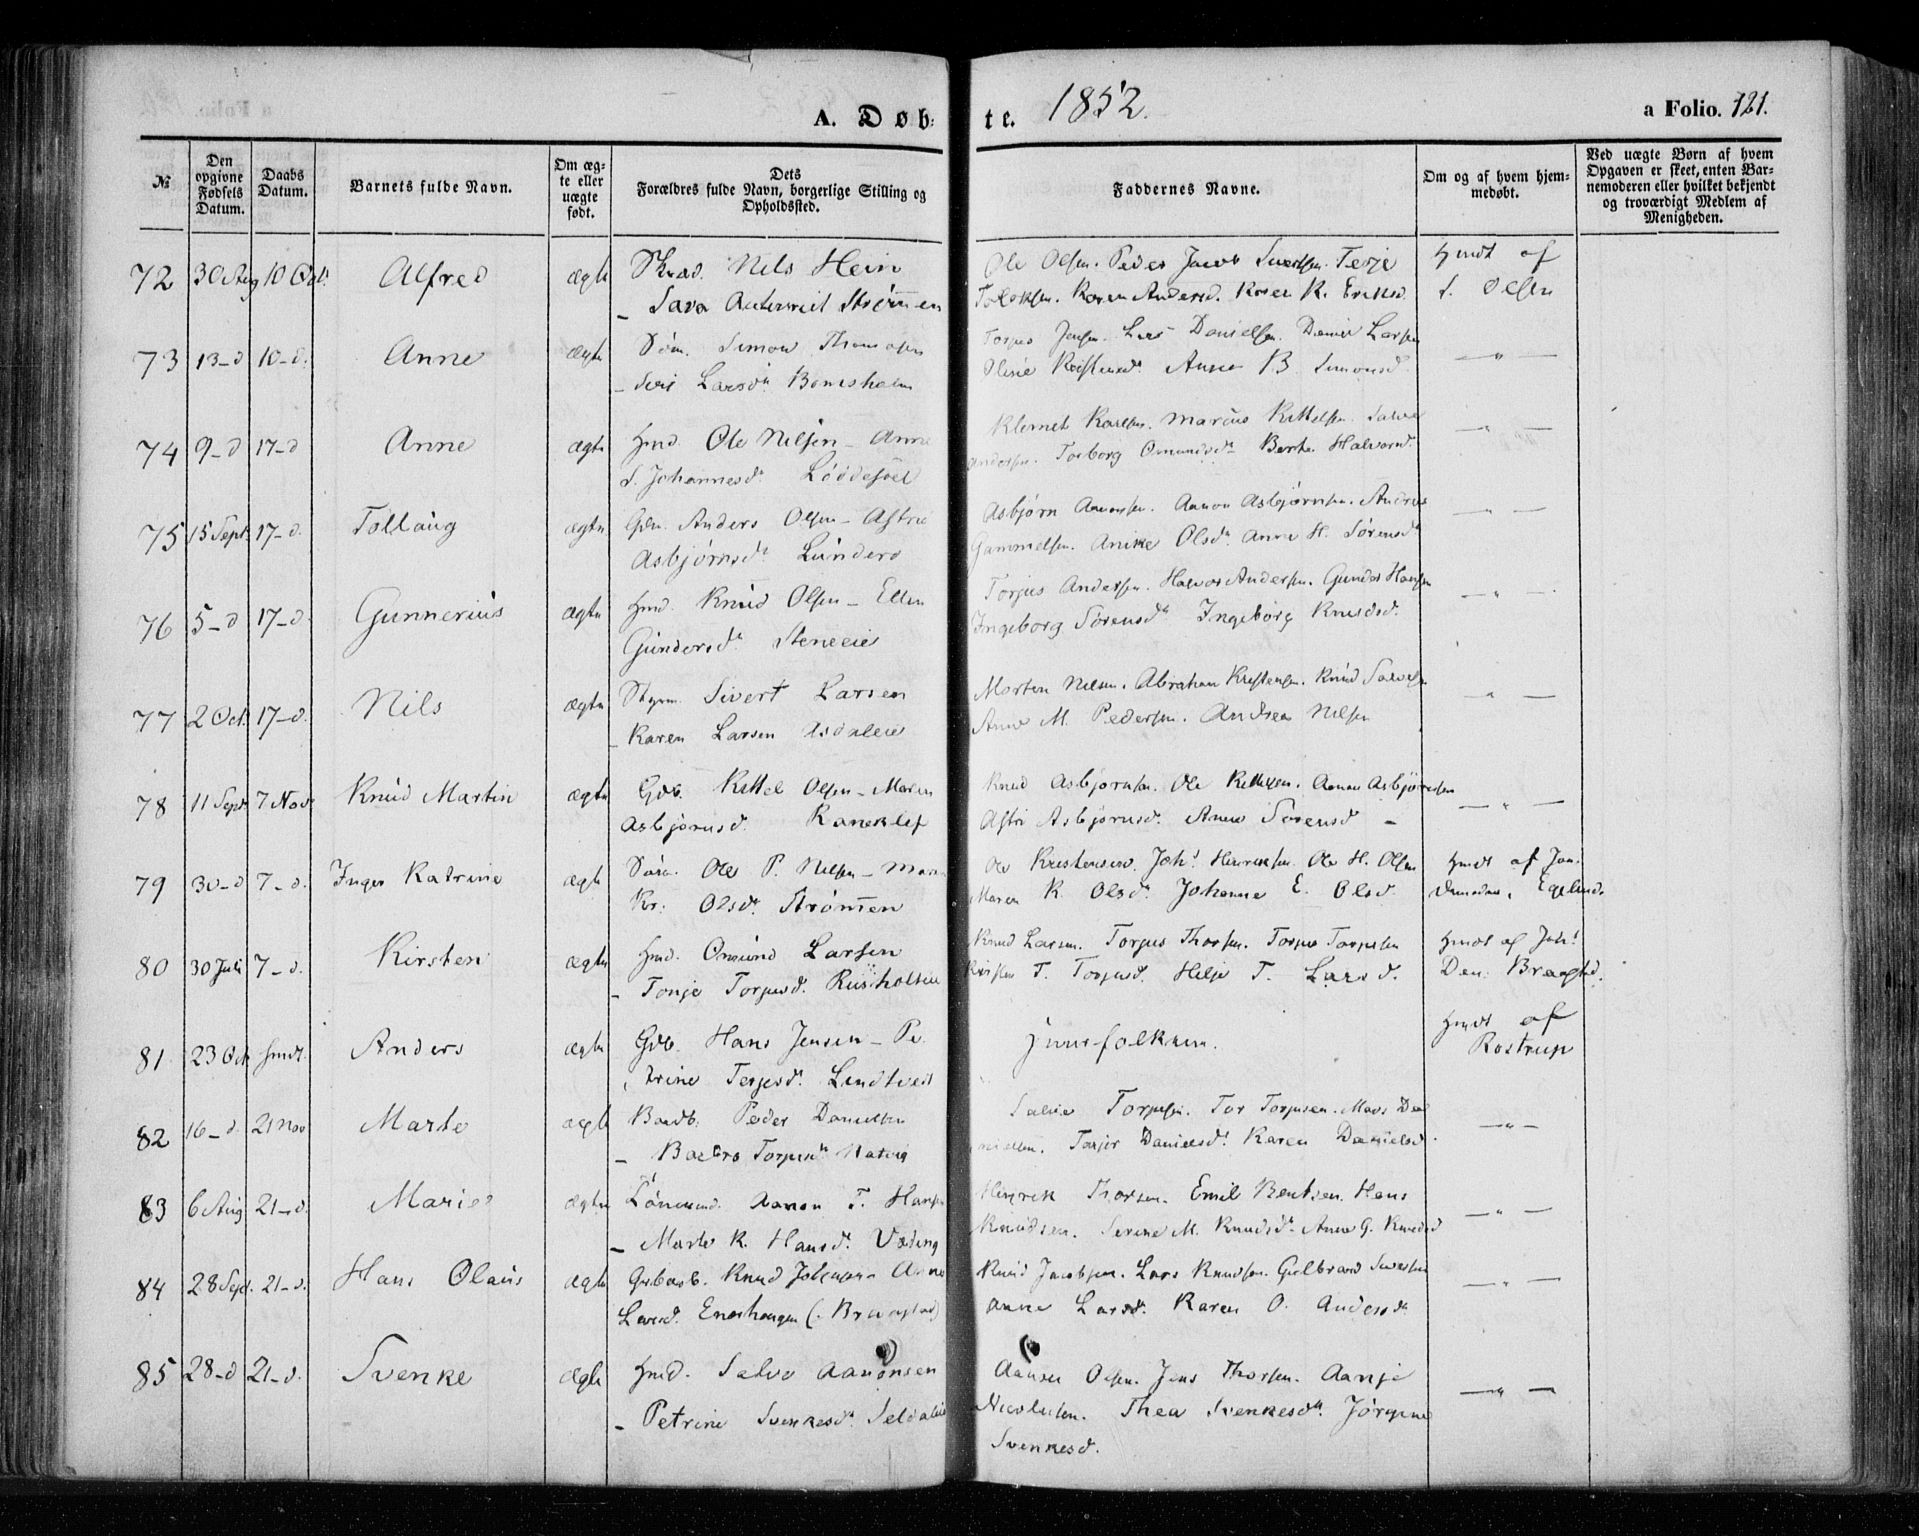 A. Døb-
te. 1852.
a Folio. 121.
№
Den opgivne Fødsels Datum.
Daabs Datum.
Barnets fulde Navn.
Om ægte eller uægte født.
Dets Forældres fulde Navn, borgerlige Stilling og Opholdssted.
Faddernes Navne.
Om og af hvem hjemmedøbt.
Ved uægte Børn af hvem Opgaven er skeet, enten Barnemoderen eller hvilket bekjendt og troværdigt Medlem af Menigheden.
72 30 Aug 10 Oct. Alfred ægte Nils Hein
Ole Olsen. Peder Jacob Terje
hmdt af
Sara Strømmen
Karen Andersd. Karen K. Eriksd.
S. Olsen
73 13-d 10-d. Anne ægte Simon Thomasen
Jensen. Lars Danielsen. Daniel Larsen
— " —
Siri Larsd.
Anne B. Simonsd.
74 9-d 17-d Anne ægte Hmd. Ole Nilsen - Anne
Klemet Karlsen. Marcus Kittelsen. Salve
— " —
S. Johannesd. Løddesøel
Andersen. Torborg Omundsd. Berthe Halvorsd.
75 15 Sept. 17-d. Tallaug ægte Gdm. Anders Olsen - Astrie
Asbjørn Aanonsen. Aanon Asbjørnsen. Andreas
— " —
Asbjørnsd. Lunderø
Gammelsen. Anike Olsd. Anne H. Sørensd.
76 5-d 17-d. Gunnerius ægte Hmd. Knud Olsen - Ellen
Torjus Andersen. Halvor Andersen. Gunder Hansen
— " —
Gundersd. Steneeie
Ingeborg Sørensd. Ingeborg Knudsd.
77 2 Oct. 17-d. Nils ægte Styrm. Sivert Larsen
Morten Nilsen. Abraham Kristensen. Knud Salvesen
— " —
- Karen Larsen Asdaleie
Anne M. Pedersen. Andrea Nilsen
78 11 Sept 7 Nov. Knud Martin ægte Gdb. Kittel Olsen - Maren
Knud Asbjørnsen. Ole Kittelsen. Aanon Asbjørnsen
— " —
Asbjørnsd. Raneklef
Astri Asbjørnsd. Anne Sørensd -
79 30-d 7-d. Inger Katrine ægte Ole P. Nilsen - Maren
Ole Kristensen. Joh. Henriksen. Ole H. Olsen
hmdt af Jon.
Kr. Olsd. Strømmen
Maren K. Olsd. Johanne E. Olsd.
80 30 Juli 7-d. Kirsten ægte Hmd. Omund Larsen
Knud Larsen. Torjus Thorsen. Torjus Torjusen
hmdt af Joh.
- Tonje Torjusd. Rüsholteie
Kirsten T. Torjusd. Helje T. Larsd.
Den. Braastad.
81 23 Oct hmdt. Anders ægte Gdb. Hans Jensen - Pe
huusfolkene.
hmdt af
trine Terjesd. Lindtveit
Rostrup
82 16-d. 21 Nov Marte ægte Peder Danielsen
Salve Torjusen. Tor Torjusen. Mads Da
— " —
- Torjusd. Natvig
nielsen. Danielsd. Karen Danielsd.
83 6 Aug 21-d. Marie ægte Aanon T. Hansen
Henrik Thorsen. Emil Bentsen. Hans
— " —
- Marte K. Hansd. Væding
Knudsen. Serine M. Knudsd. Anne G. Knudsd
84 28 Sept. 21-d. Hans Olaus ægte Knud Johnsen - Anne
Knud Jacobsen. Lars Knudsen. Gulbrand
— " —
Larsd. Eneshaugen (. Braastad)
Anne Larsd. Karen O. Andersd.
85 28-d 21-d. Svenke ægte Hmd. Salve Aanonsen
Aanon Olsen. Jens Thorsen. Aanje
— " —
- Petrine Svenkesd. Seldaleie
Nicolaisen. Thea Svenkesd. Jørgine
Svenkesd.